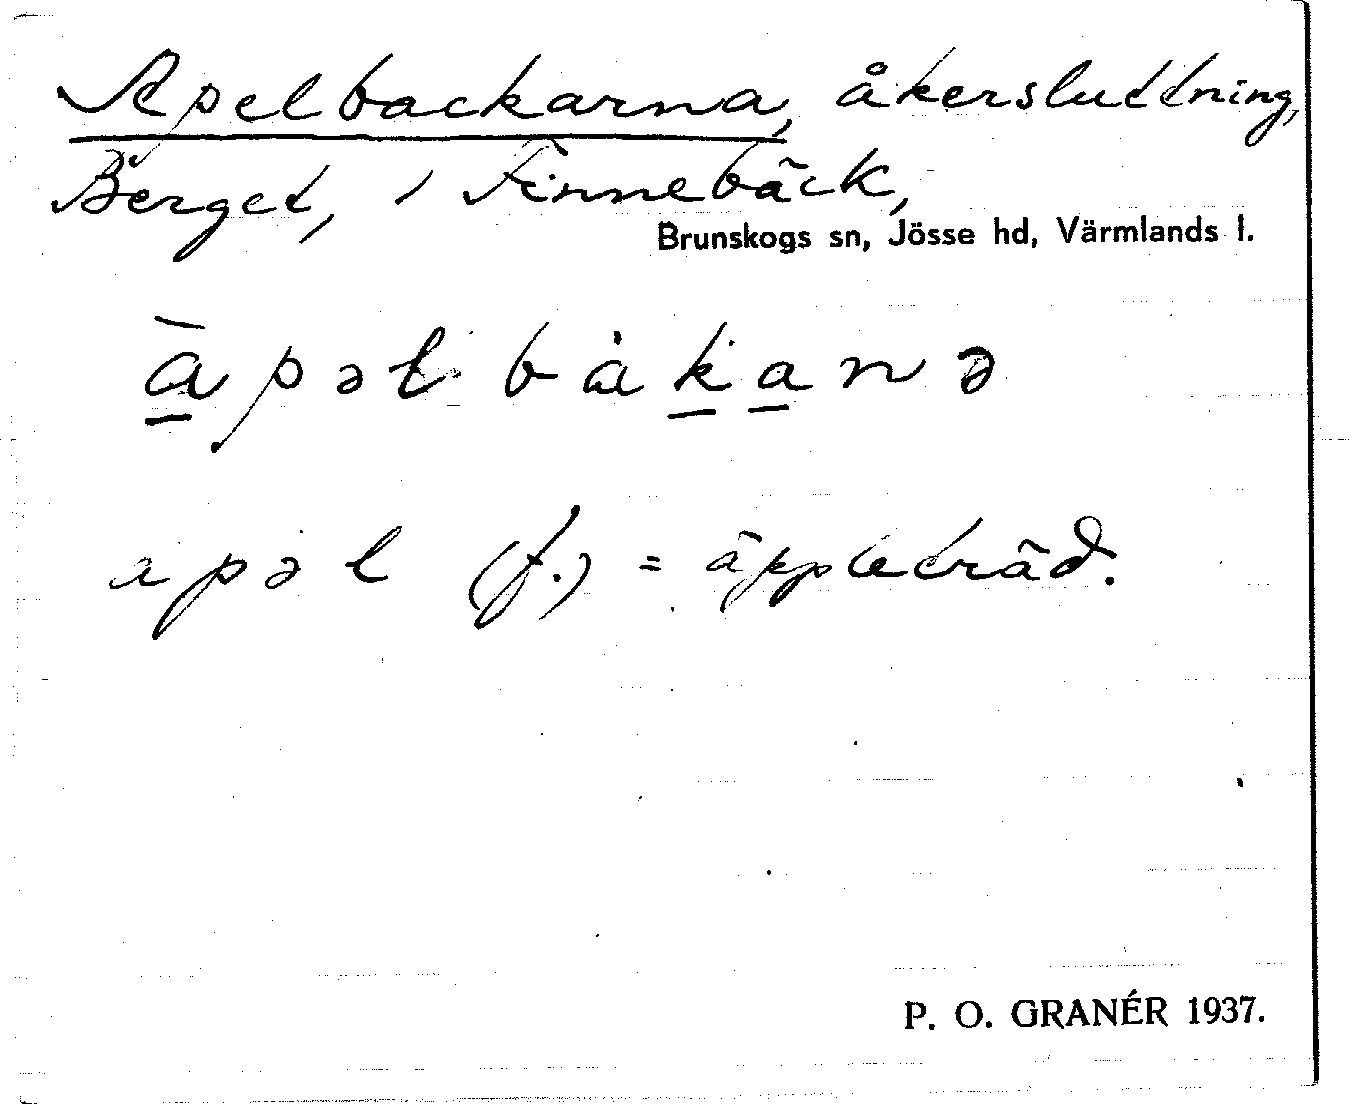 Apelbackarna, åkersluttning,
Berget, 1 Finnebäck,
Brunskogs sn, Jösse hd, Värmlands l.
àpəɫbàkanə
apəl (f.) = äppleträd.
P. O. GRANÉR 1937.